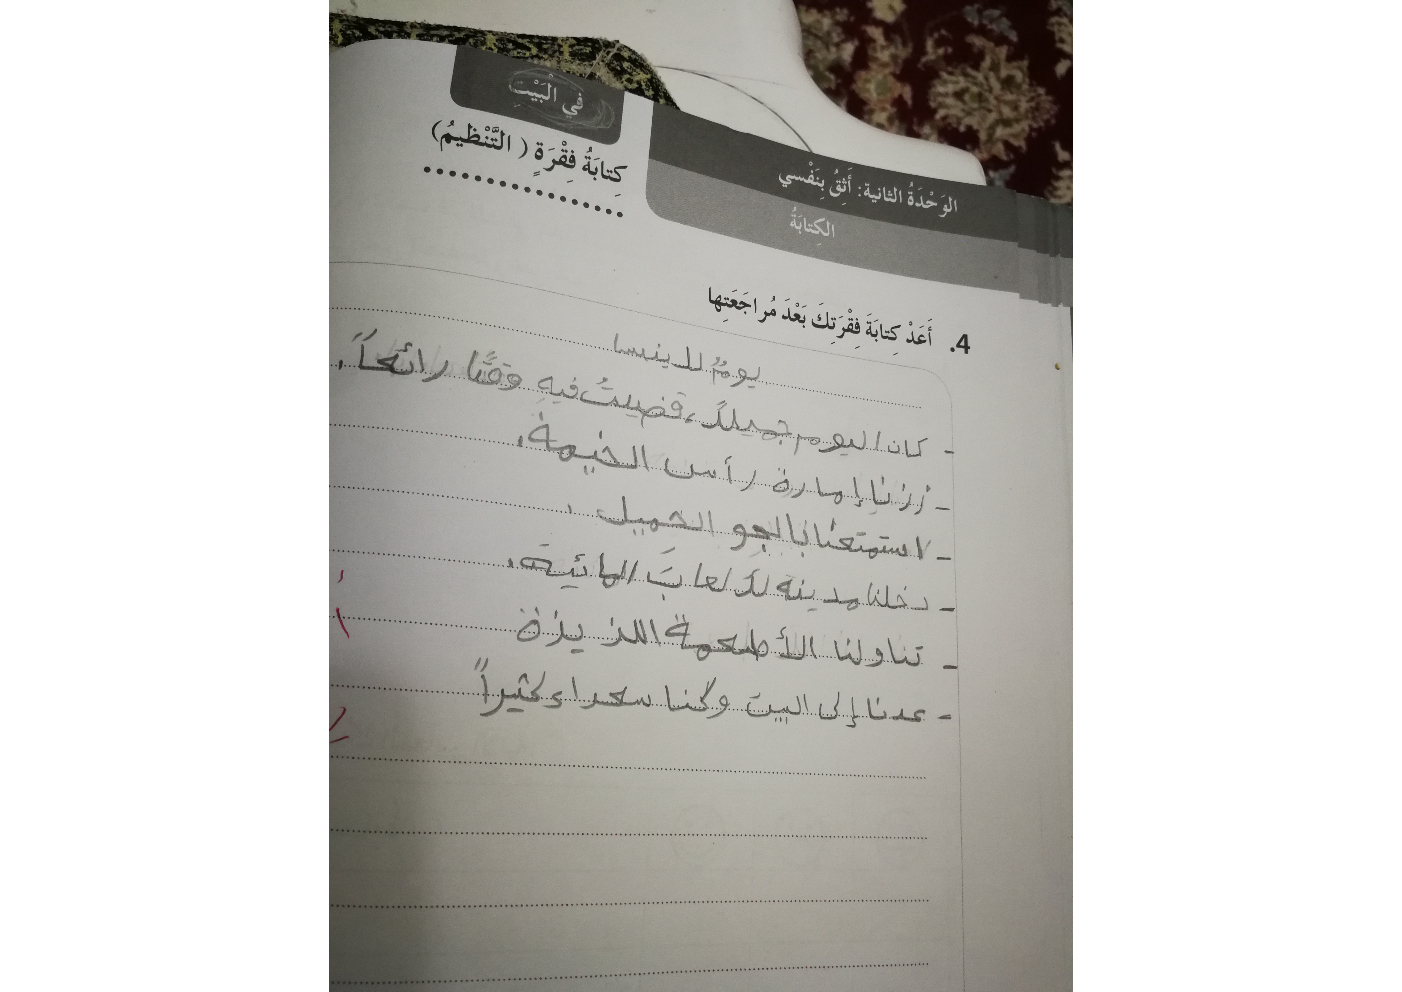 في الْبَيْتِ
كِتابَةُ فِقْرَةٍ ( التَّنْظيمُ)
الوَحْدَةُ الثانية: أَثِقُ بِنَفْسي
الكِتابَةُ
4. أَعَدْ كِتابَةَ فِقْرَتِكَ بَعْدَ مُراجَعَتِها
يومٌ لا ينسا
- كان اليوم جميلاً، قضيتُ فيه وقتًا رائعاً.
- زرنا إمارة رأس الخيمة.
- استمتعنا بالجو الجميل.
- دخلنا مدينه لألعاب المائية.
- تناولنا الأطعمة اللذيذة
- عدنا إلى البيت وكنا سعداء كثيراً